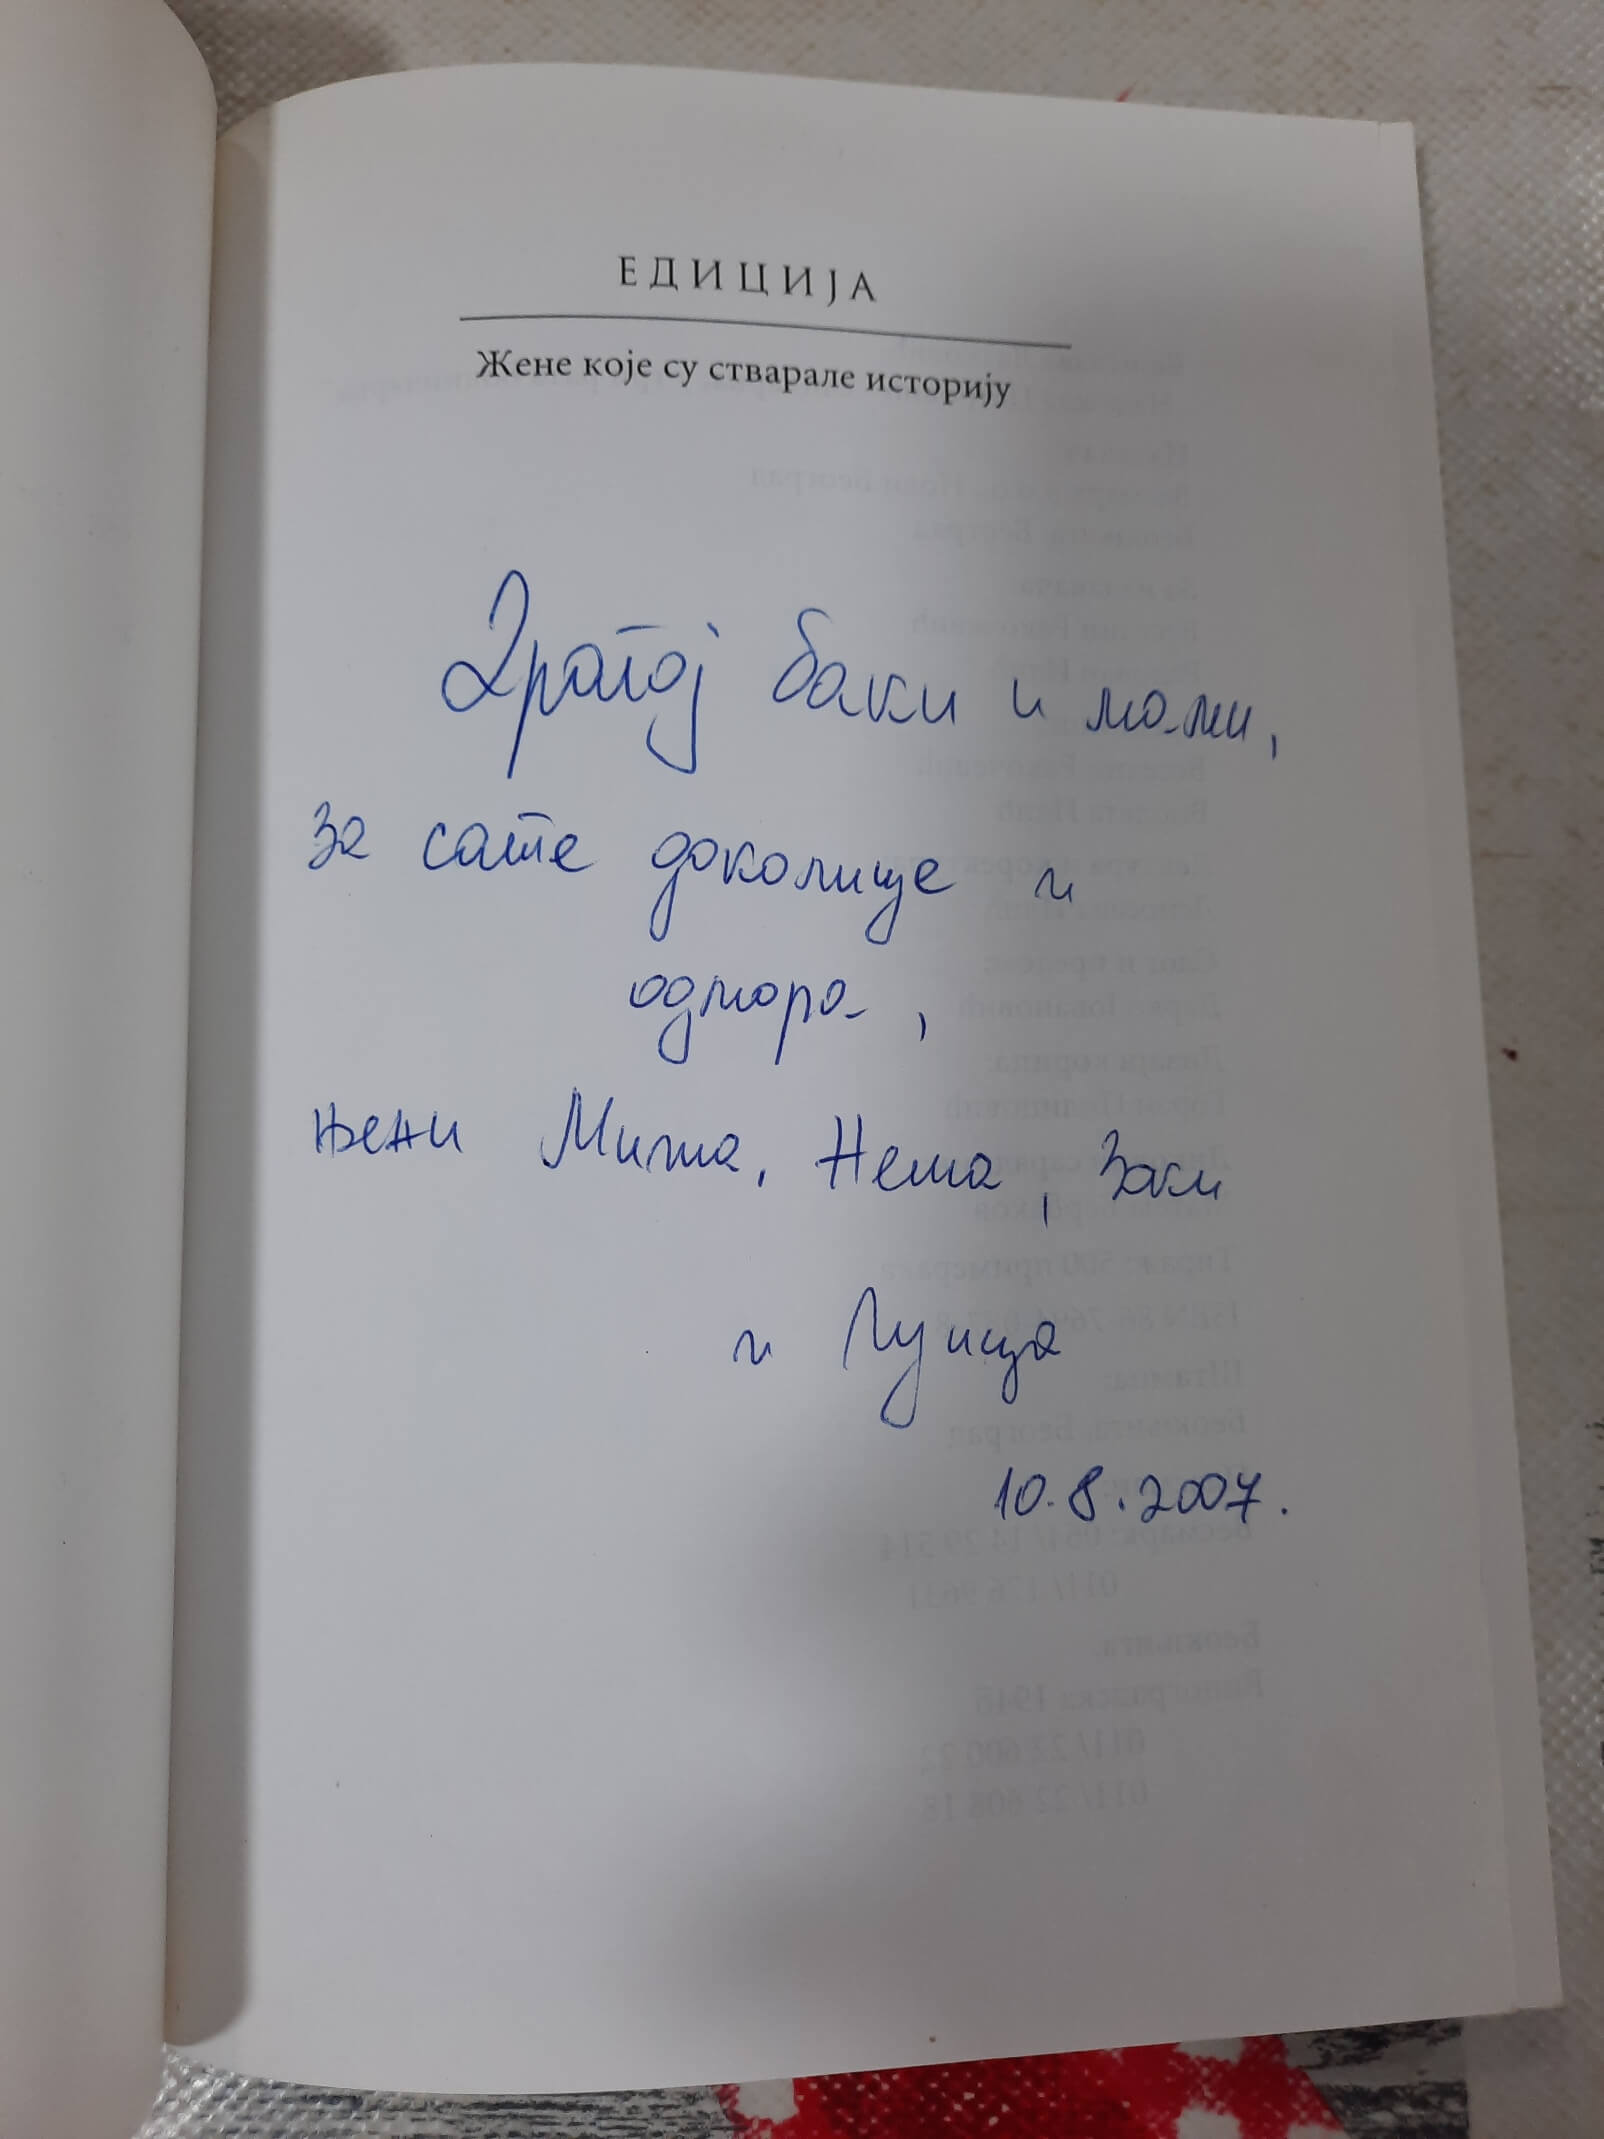 ЕДИЦИЈА
Жене које су стварале историју
Драгој баки и мами,
за сате доколице и
одмора,
њени Миша, Неша, Заки
и Луица
10.8.2007.